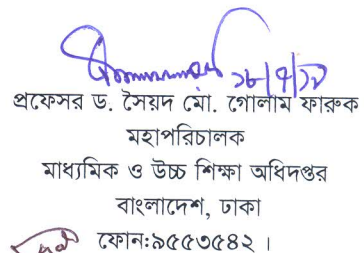 ১৮/৭/১৮
প্রফেসর ড. সৈয়দ মো. গোলাম ফারুক
মহাপরিচালক
মাধ্যমিক ও উচ্চ শিক্ষা অধিদপ্তর
বাংলাদেশ, ঢাকা
ফোন:৯৫৫৩৫৪২ ।